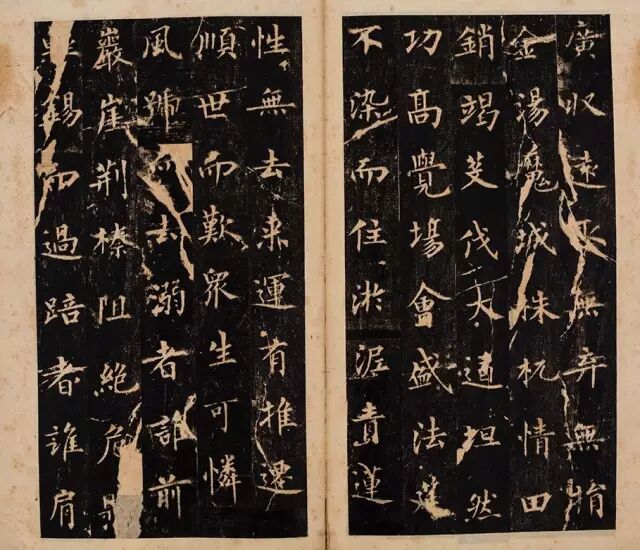 廣収遠取無弃無
金湯魔城株杌情田
銷竭芟伐大道坦然
功高覺場會盛法筵
不染而住淤泥青蓮
性無去来運有推遷
順世而歎衆生可憐
風去溺者誰前
巖崖荆榛阻絶危
錫而過踣者誰肩